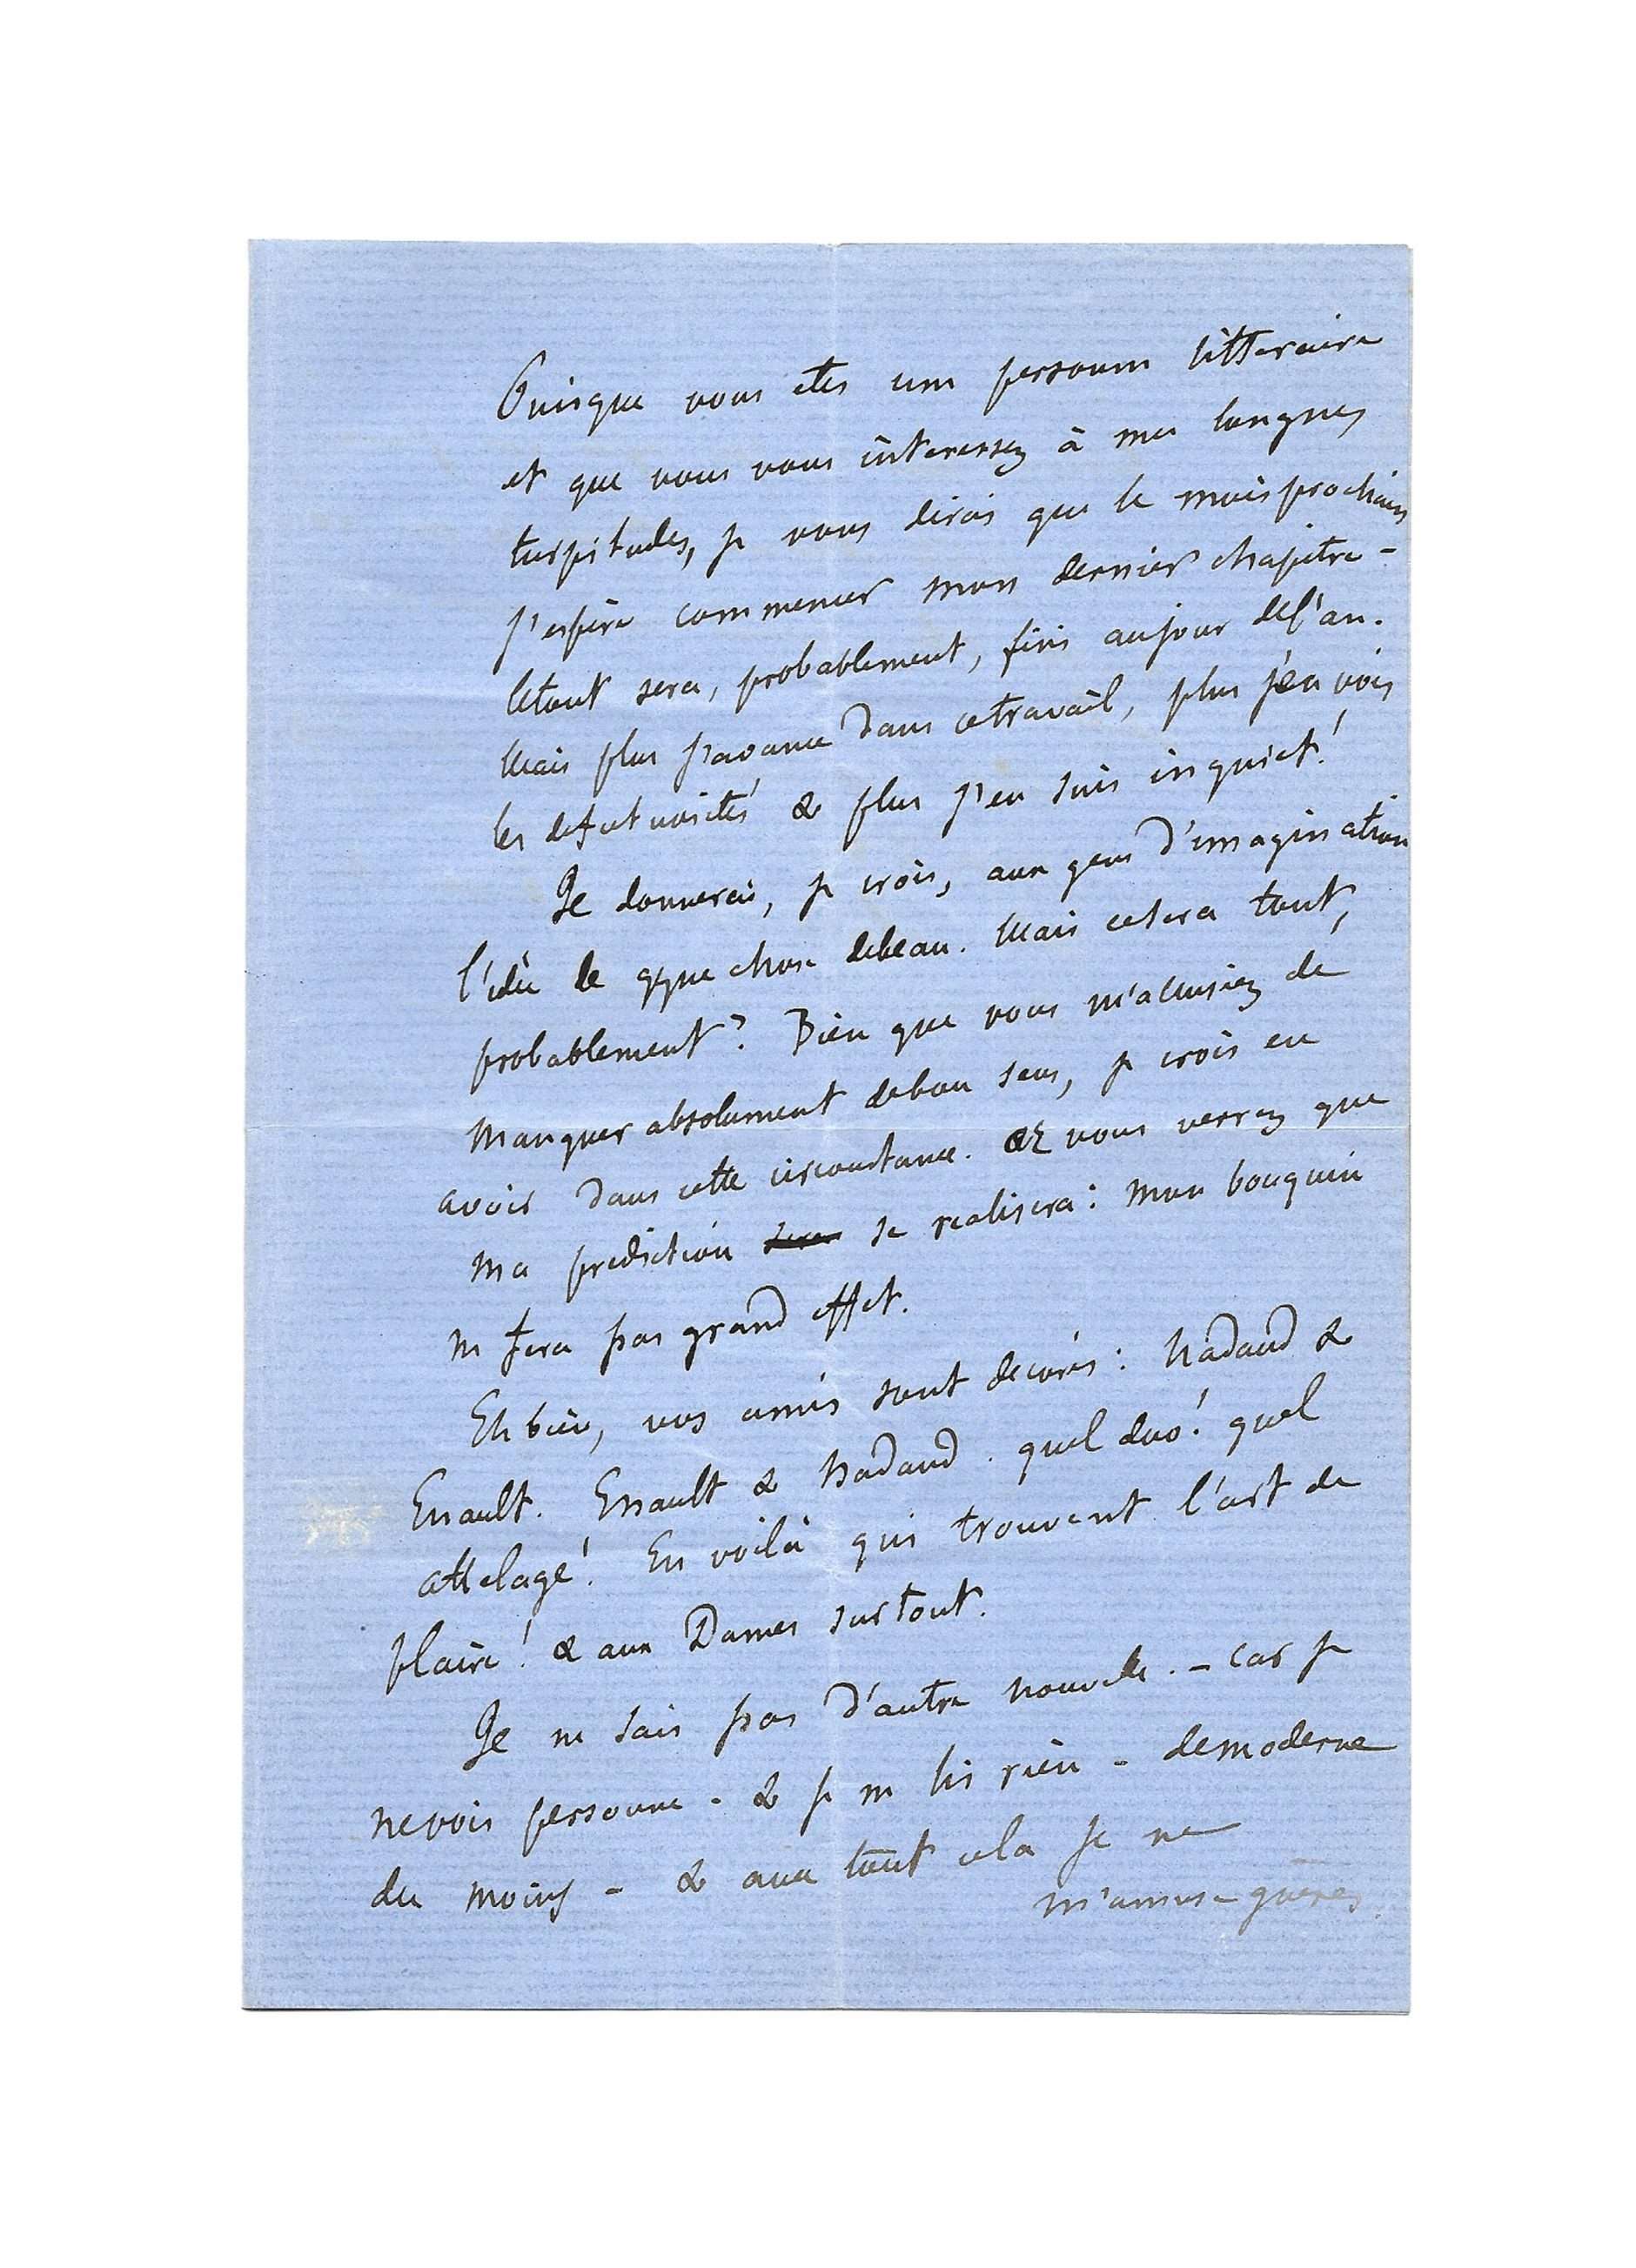 Puisque vous etes une personne litteraire
et que vous vous interessez à mes longues
turpitudes, je vous dirai que le mois prochain
j'espère commencer mon dernier chapitre -
letout sera, probablement, fini aujour del'an.
Mais plus j'avance dans cetravail, plus j'en vois
les defectuosités & plus j'en suis inquiet!
Je donnerai, je crois, aux gens d'imagination
l'idée de qque chose debeau. Mais cesera tout,
probablement? Bien que vous m'accusiez de
manquer absolument debon sens, je crois en
avoir dans cette circonstance. Et vous verrez que
ma prediction sera se realisera: mon bouquin
ne fera pas grand effet.
Eh bien, vos amis sont decorés: Nadaud &
Enault. Enault & Nadaud. quel duo! quel
attelage! En voilà qui trouvent l'art de
plaire! & aux Dames surtout.
Je ne sais pas d'autre nouvelle. - Car je
nevois personne - & je ne lis rien - demoderne
du moins - & avec tout cela je ne
m'amuse guères.